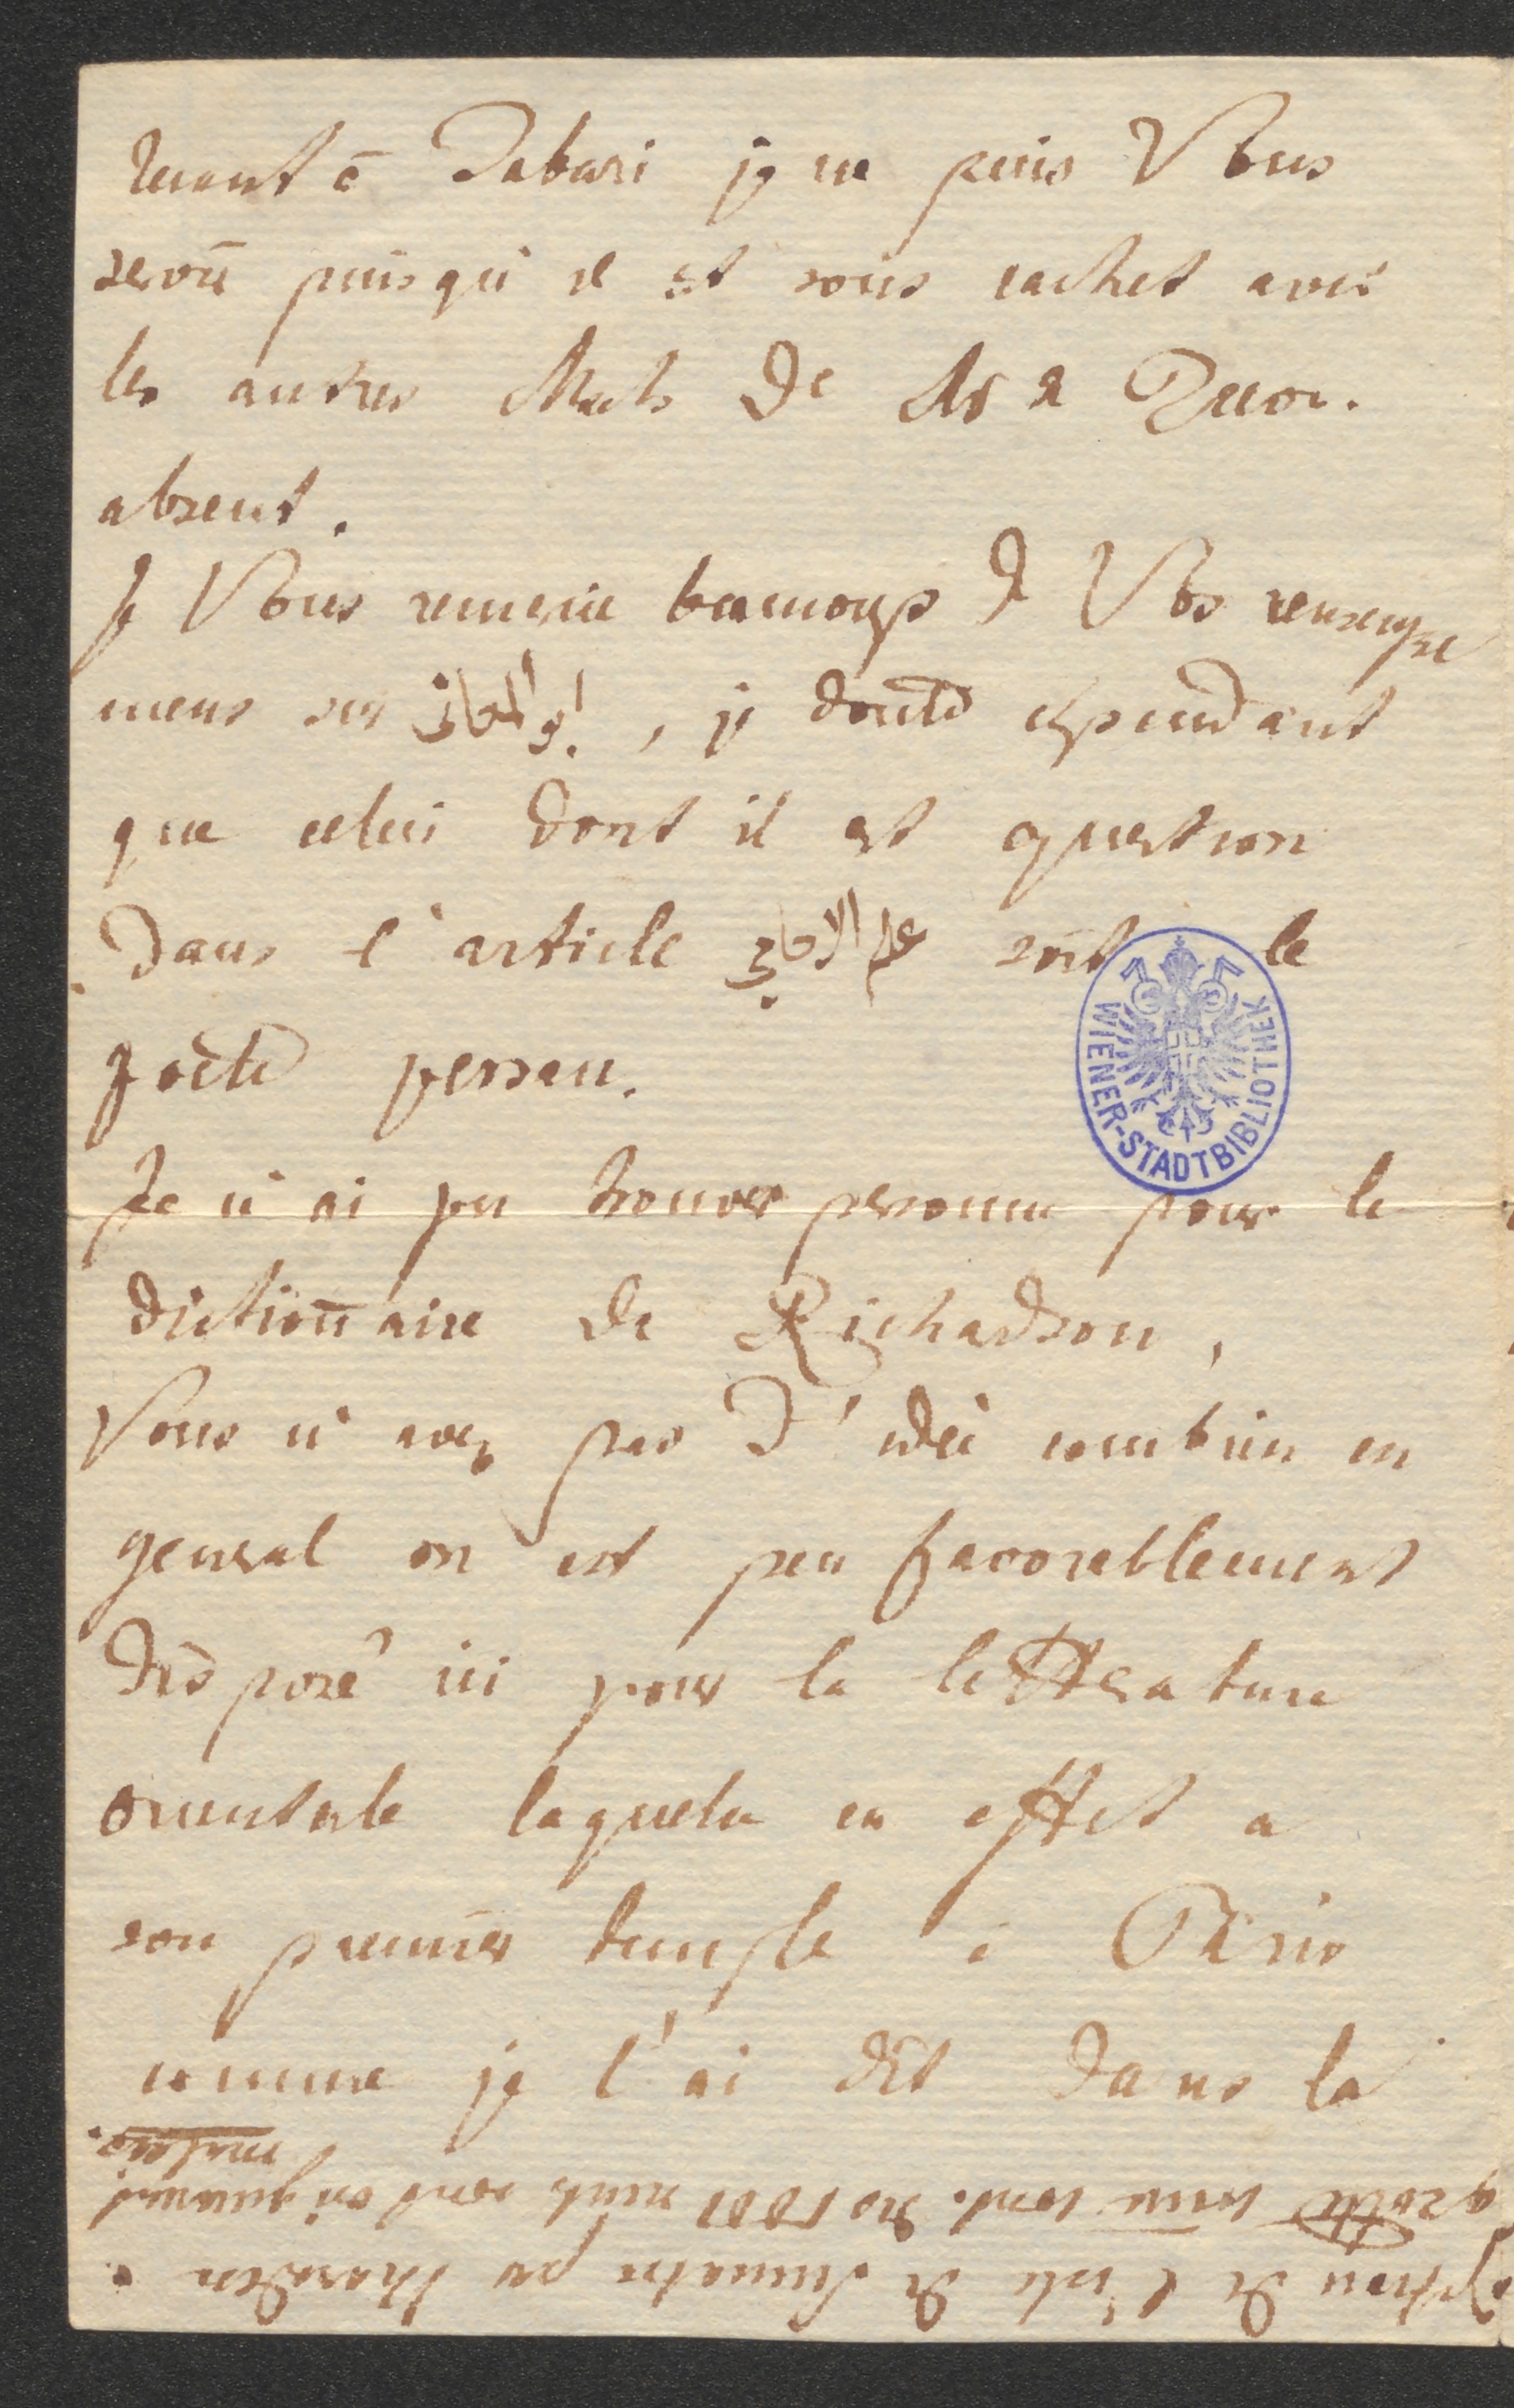 quant à Tabari je ne puis Vous
servir puisqu'il est sous cachet avec
les autres Mscts de Mr
absent.
Je Vous remercie beaucoup d Vos renseigne
mens sur ابو المعانى, je doute cependant
que celui dont il est question
dans l'article علم الاحاجى soit le
poëte persan.
Je n'ai pu trouver personne pour le
dictionnaire de Richardson,
Vous n'avez pas d'idée combien en
general on est peu favorablement
disposé ici pour la letterature
orientale laquelle en effet a
son premier temple à Paris
comme je l'ai dit dans la
WIENER-STADTBIBLIOTHEK
de l'isle de Sumatra par Marsden
1001 nuits